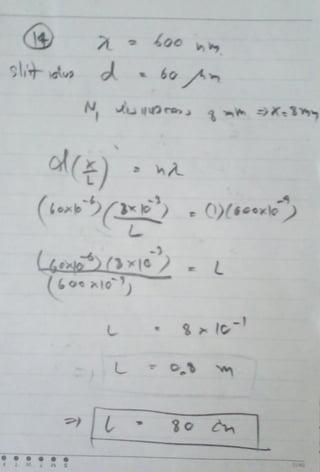 14 λ = 600 nm.
d = 60 μm
N₁ 8 mm ⇒ x = 8 mm
d(x/L) = nλ
(60×10⁻⁶)(8×10⁻³/L) = (1)(600×10⁻⁹)
(60×10⁻⁶)(8×10⁻³)/(600×10⁻⁹) = L
L = 8 × 10⁻¹
⇒ L = 0.8 m
⇒ L = 80 cm